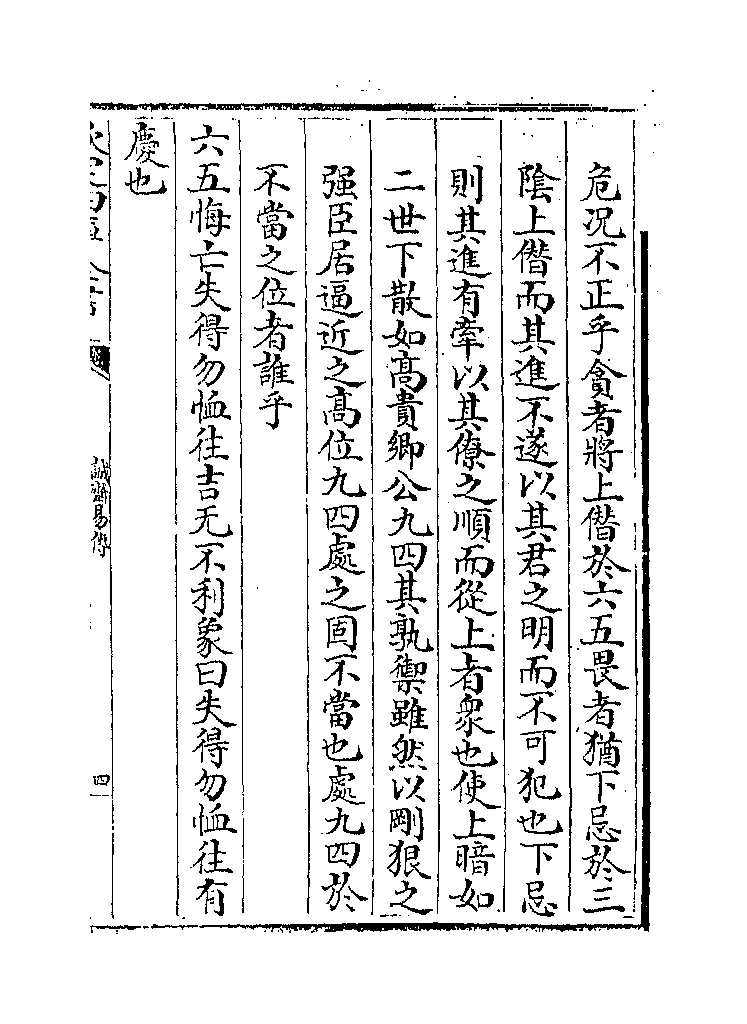 危况不正乎貪者將上僭於六五畏者猶下忌於三
陰上僭而其進不遂以其君之明而不可犯也下忌
則其進有牽以其僚之順而從上者衆也使上暗如
二世下散如髙貴鄉公九四其孰禦雖然以剛狠之
强臣居逼近之髙位九四處之固不當也處九四於
不當之位者誰乎
六五悔亡失得勿恤往吉无不利象曰失得勿恤往有
慶也
誠齋易傳
四